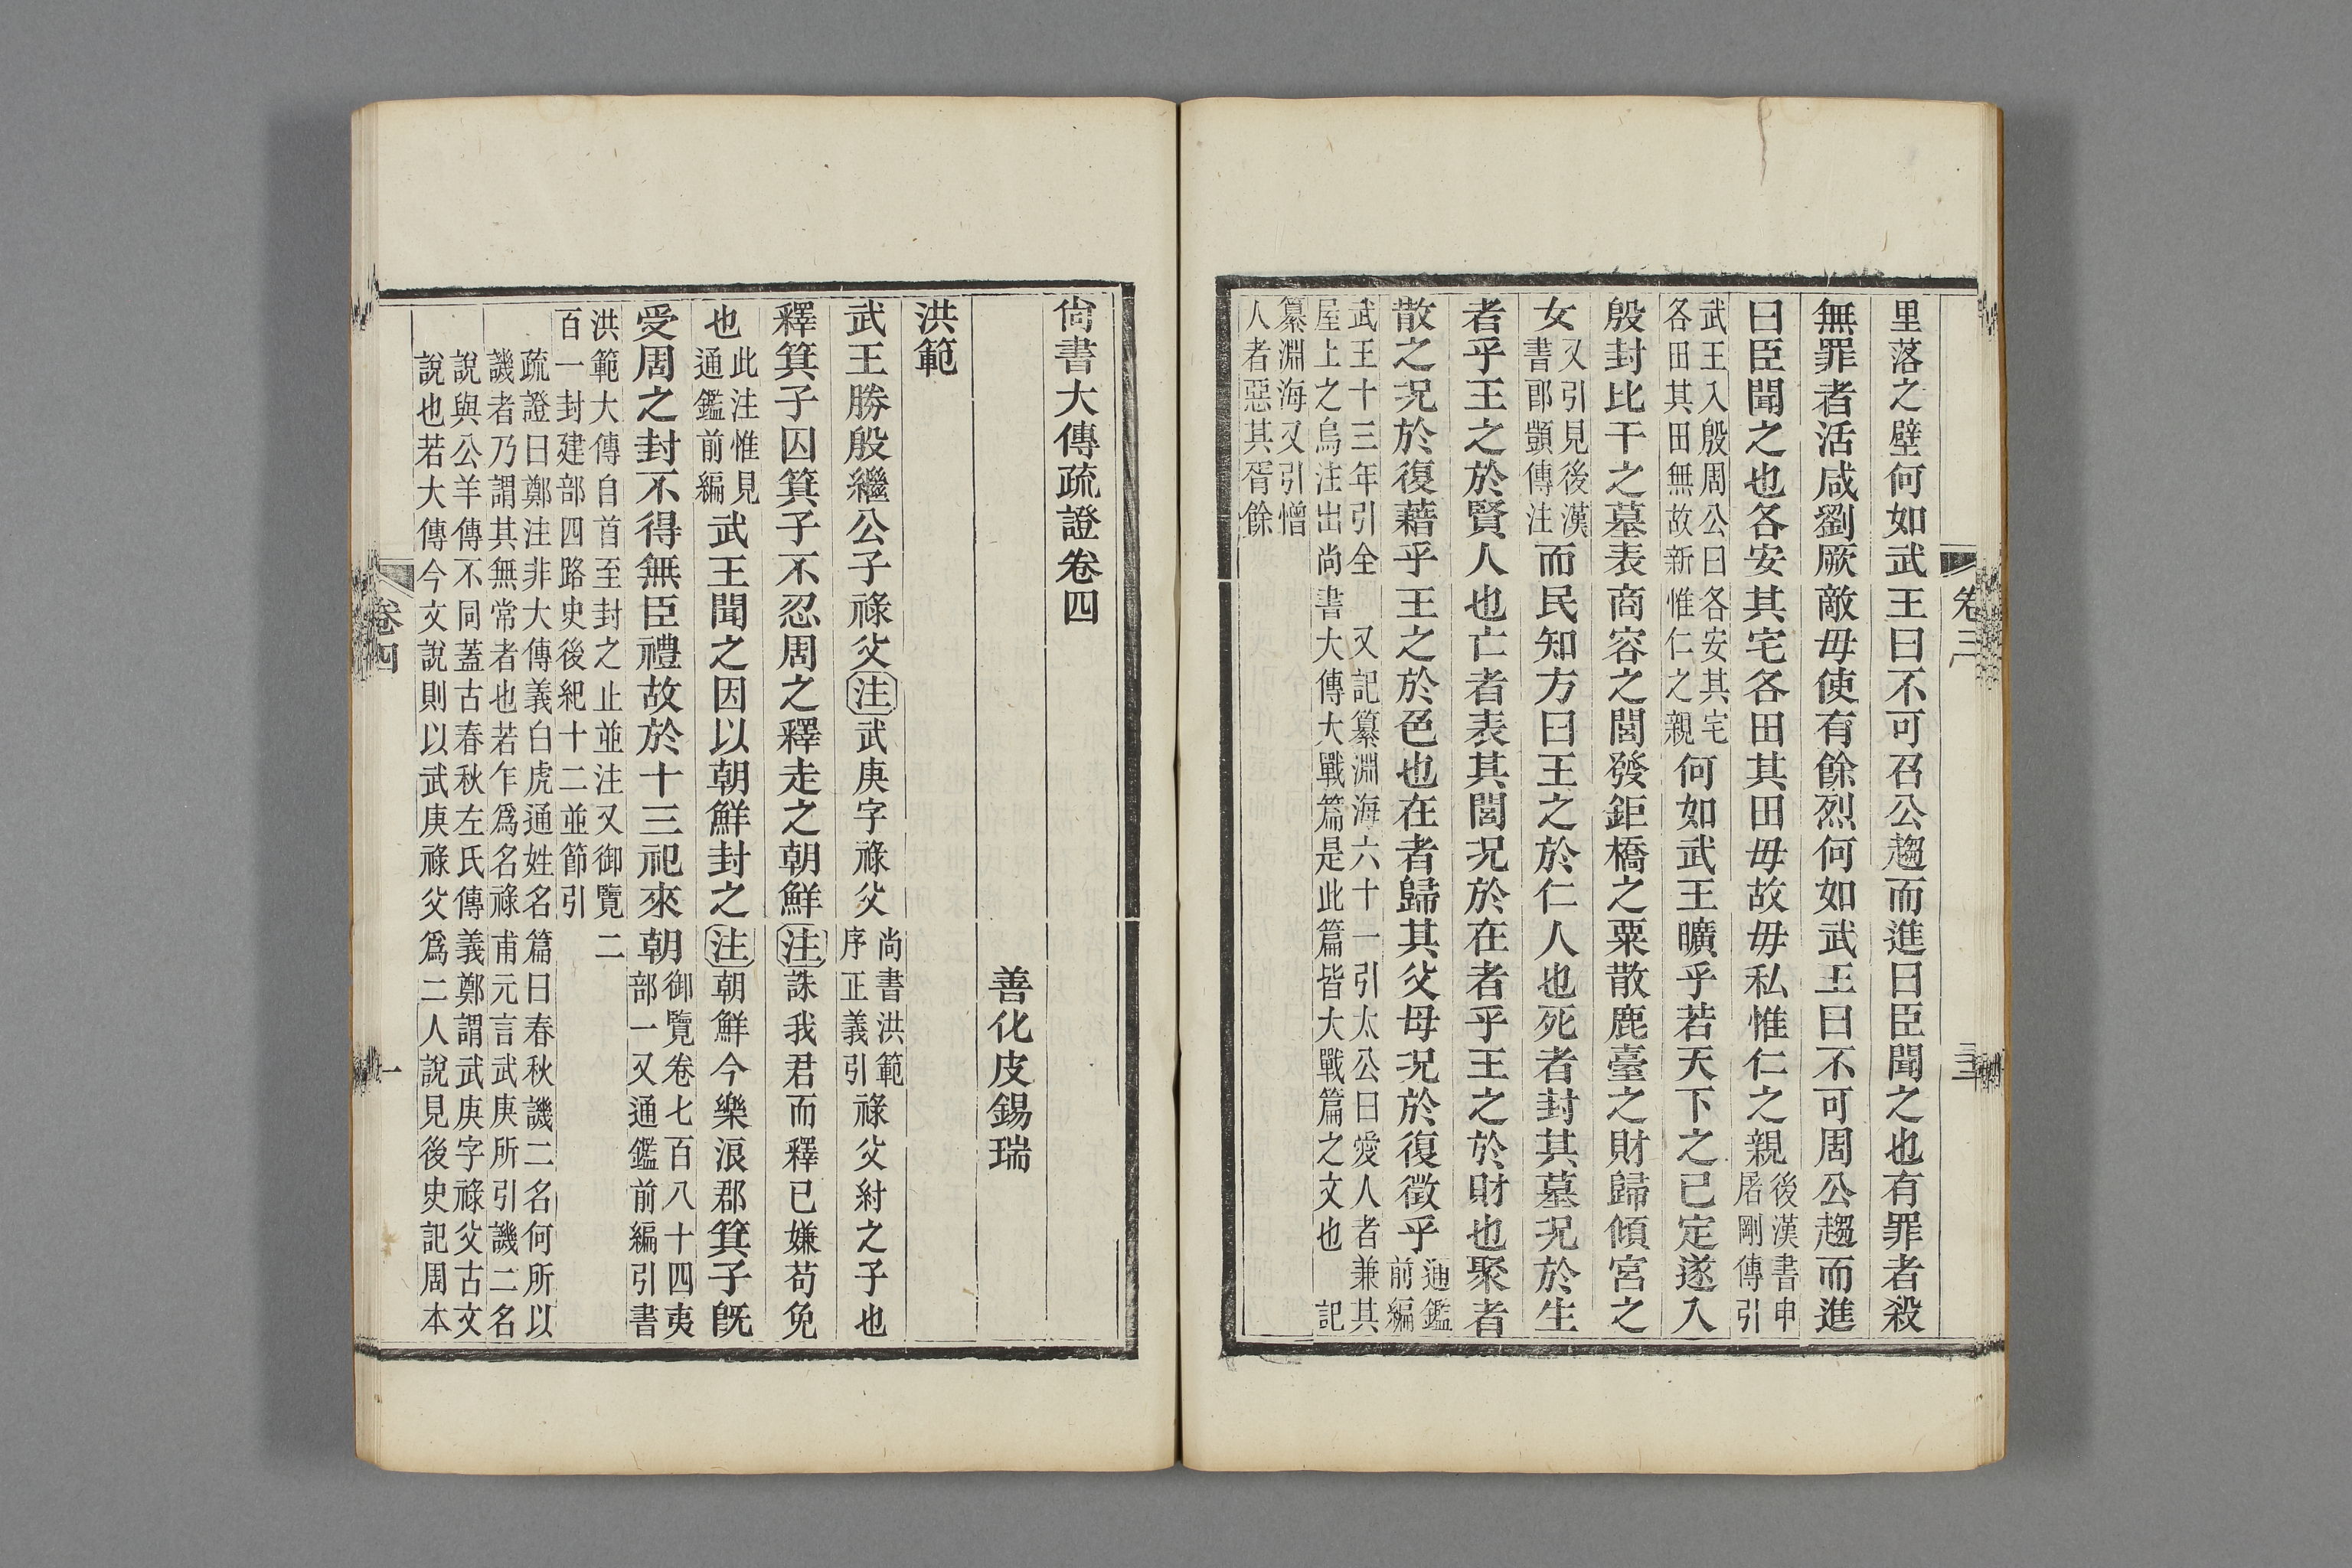 里落之壁何如武王曰不可召公趨而進曰臣聞之也有罪者殺
無罪者活咸劉厥敵毋使有餘烈何如武王曰不可周公趨而進
曰臣聞之也各安其宅各田其田毋故毋私惟仁之親後漢書申
屠剛傳引
武王入殷周公曰各安其宅
各田其田無故新惟仁之親何如武王曠乎若天下之已定遂入
殷封比干之墓表商容之閭發鉅橋之粟散鹿臺之財歸傾宮之
女又引見後漢
書郎顗傳注而民知方曰王之於仁人也死者封其墓況於生
者乎王之於賢人也亡者表其閭況於在者乎王之於財也聚者
散之況於復藉乎王之於色也在者歸其父母況於復徵乎通鑑
前編
武王十三年引全 又記纂淵海六十一引太公曰愛人者兼其
屋上之烏注出尚書大傳大戰篇是此篇皆大戰篇之文也 記
纂淵海又引憎
人者惡其胥餘
卷三
尙書大傳疏證卷四
善化皮錫瑞
洪範
武王勝殷繼公子祿父注武庚字祿父尚書洪範
序正義引祿父紂之子也
釋箕子囚箕子不忍周之釋走之朝鮮注誅我君而釋已嫌苟免
也此注惟見
通鑑前編武王聞之因以朝鮮封之注朝鮮今樂浪郡箕子旣
受周之封不得無臣禮故於十三祀來朝御覽卷七百八十四夷
部一又通鑑前編引書
洪範大傳自首至封之止並注又御覽二
百一封建部四路史後紀十二並節引
疏證曰鄭注非大傳義白虎通姓名篇曰春秋譏二名何所以
譏者乃謂其無常者也若乍爲名祿甫元言武庚所引譏二名
說與公羊傳不同蓋古春秋左氏傳義鄭謂武庚字祿父古文
說也若大傳今文說則以武庚祿父爲二人說見後史記周本
卷四
一